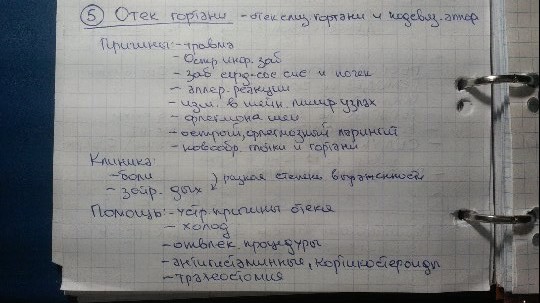 5 Отек гортани - отек слиз. гортани и
Причины: - травма
- Остр. инф. заб
- заб серд-сос сис и почек
- аллер. реакции
- изм. в шейн. лимф узлах
- флегмона шеи
- острый, флегмозный ларингит
- новообр. глотки и гортани
Клиника:
- боли
- затр. дых } разная степень выраженности
Помощь: - устр. причины отека
- холод
- отвлек. процедуры
- антигистаминные, кортикостероиды
- трахеостомия